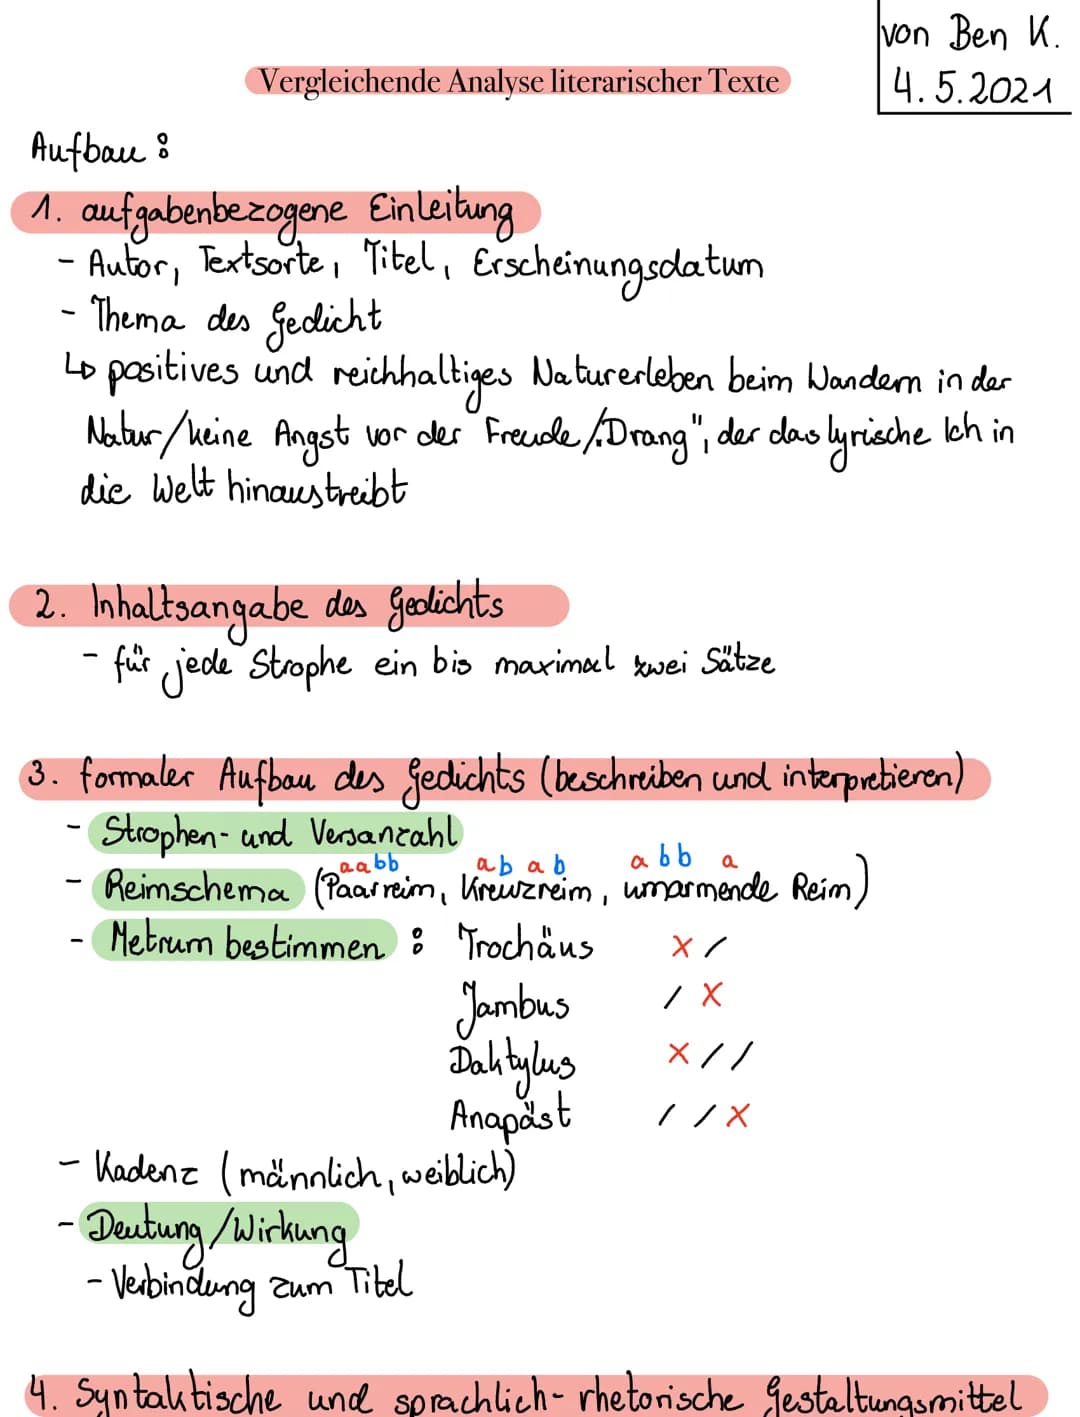 von Ben K.
4.5.2021
Vergleichende Analyse literarischer Texte
Aufbau:
1. aufgabenbezogene Einleitung
- Autor, Textsorte, Titel, Erscheinungsdatum
- Thema des Gedicht
↳ positives und reichhaltiges Naturerleben beim Wandern in der
Natur/keine Angst vor der Freude/"Drang", der das lyrische Ich in
die Welt hinaustreibt
2. Inhaltsangabe des Gedichts
- für jede Strophe ein bis maximal zwei Sätze
3. formaler Aufbau des Gedichts (beschreiben und interpretieren)
- Strophen- und Versanzahl
aabb abab abba
- Reimschema (Paarreim, Kreuzreim, umarmende Reim)
- Metrum bestimmen: Trochäus x /
Jambus / x
Daktylus x / /
Anapäst / / x
- Kadenz (männlich, weiblich)
- Deutung/Wirkung
- Verbindung zum Titel
4. Syntaktische und sprachlich-rhetorische Gestaltungsmittel